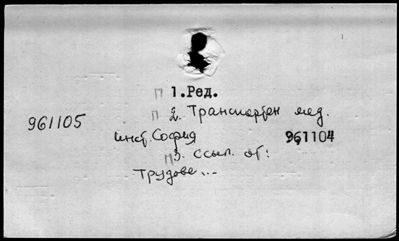 П 1. Ред.
П 2. Транспортен мед.
961105
инст. София 961104
П 3. ссып. от:
Трудове...